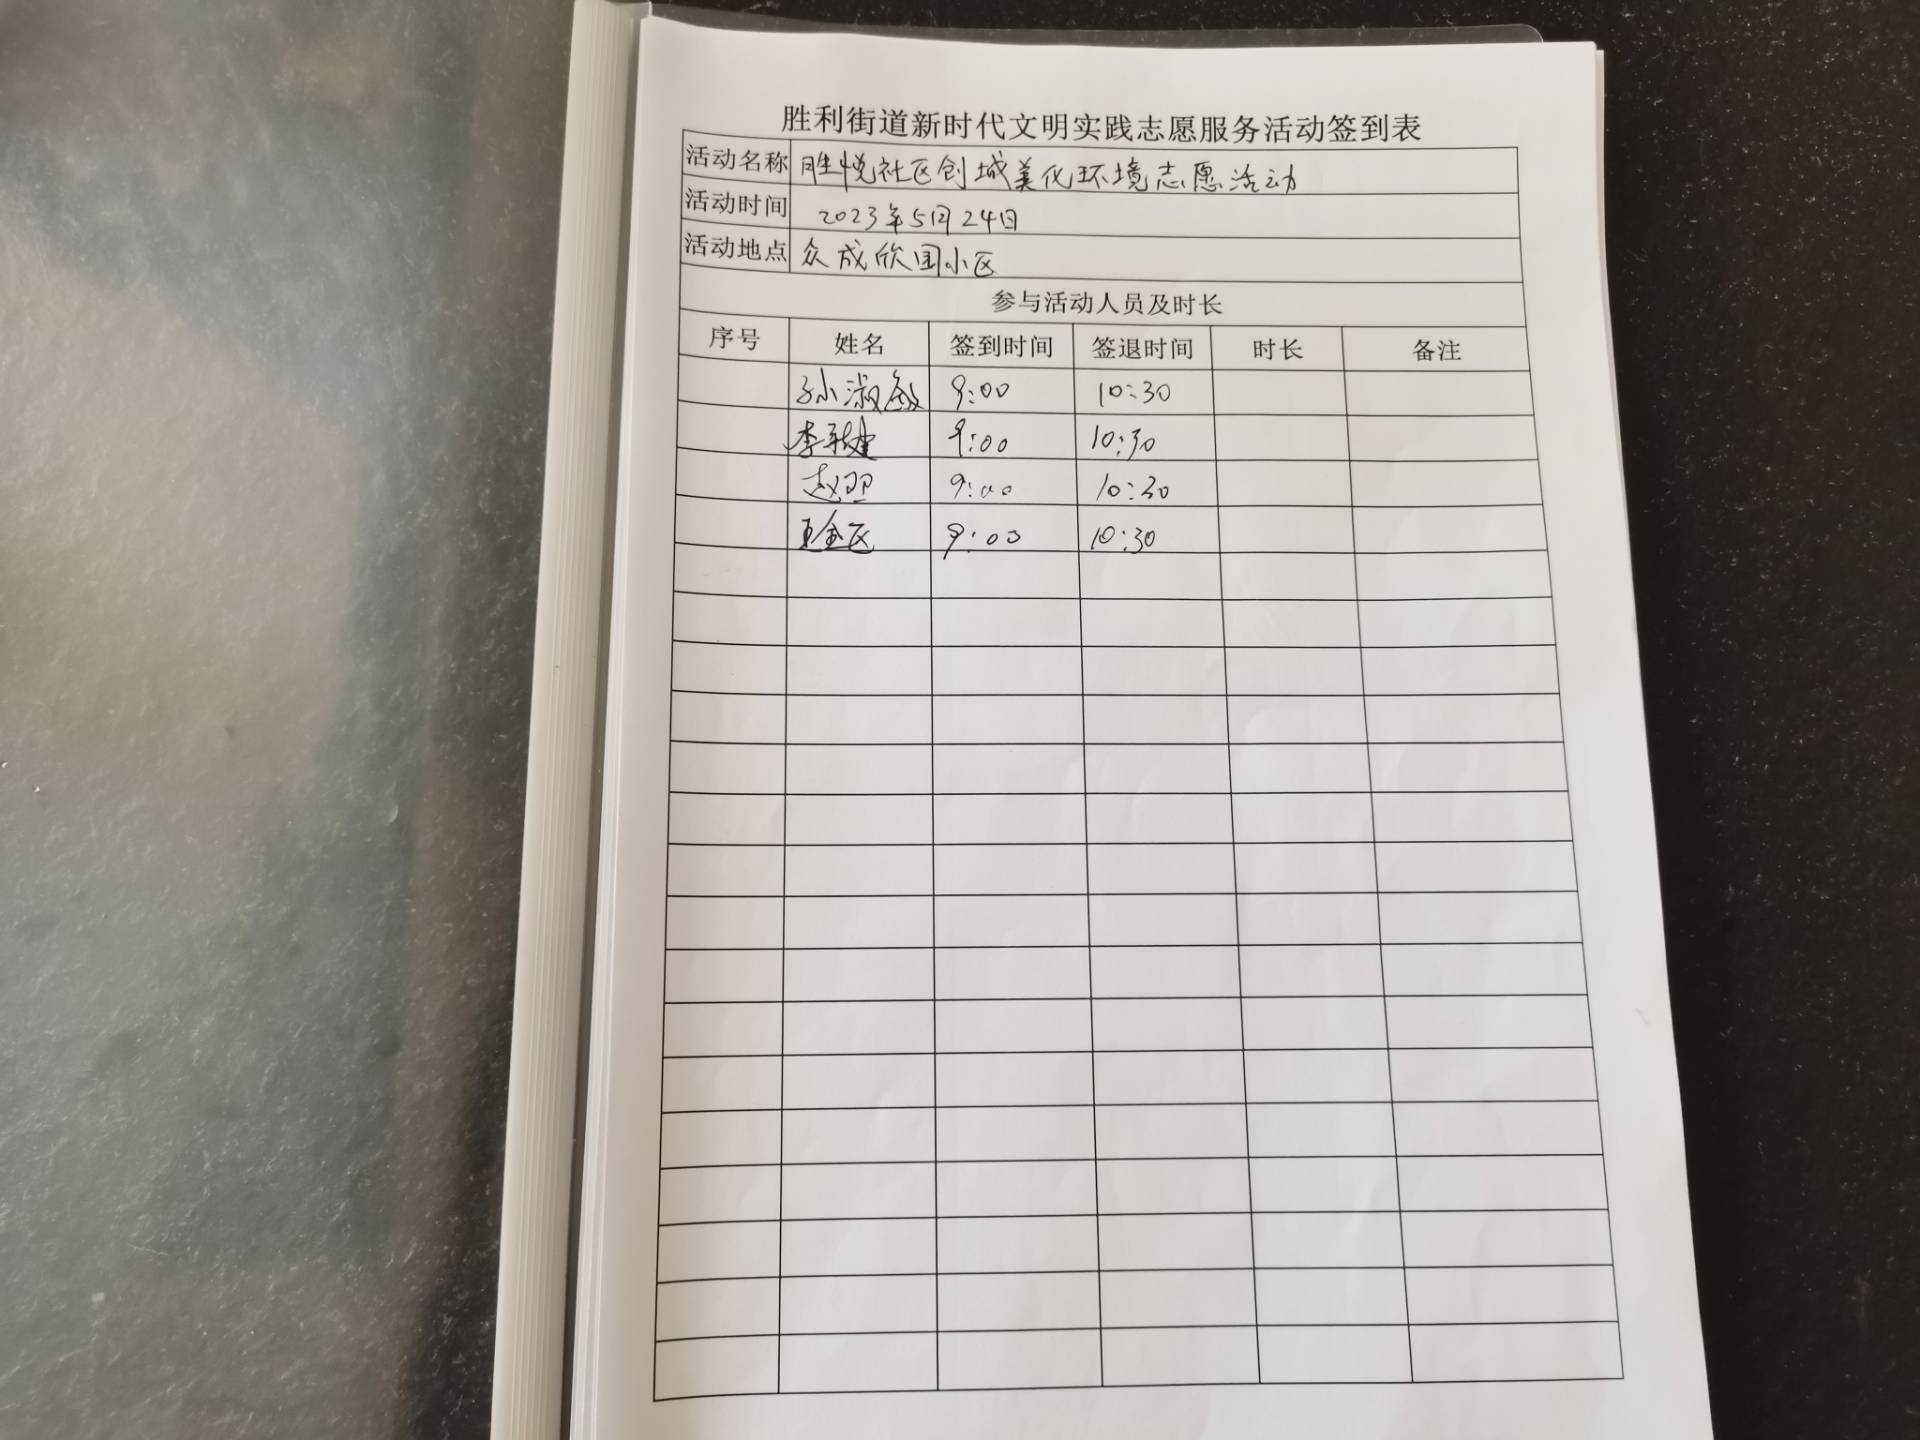 胜利街道新时代文明实践志愿服务活动签到表
活动名称 胜悦社区创城美化环境志愿活动
活动时间 2023年5月24日
活动地点 众成欣园小区
参与活动人员及时长
序号 姓名 签到时间 签退时间 时长 备注
孙淑敏 9:00 10:30
李 9:00 10:30
赵 9:00 10:30
9:00 10:30